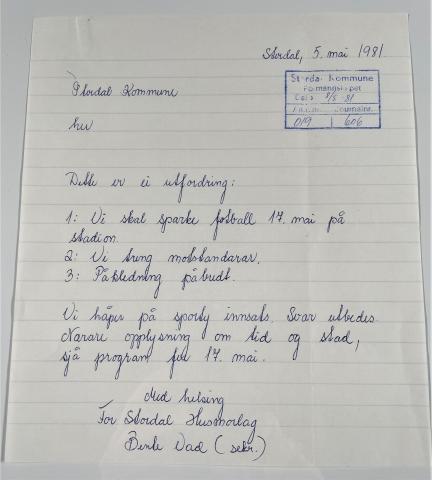 Stordal, 5. mai 1981
Stordal Kommune
Formannskapet
8/5 81
Journalnr.
019 606
Stordal Kommune
her
Dette er ei utfordring:
1: Vi skal sparke fotball 17. mai på
stadion.
2: Vi treng motstandarar.
3: Påkledning påbudt.
Vi håper på sporty innsats. Svar utbedes
Nærare opplysning om tid og stad,
sjå program for 17. mai.
Med helsing
For Stordal Husmorlag
Bente Vad (sekr.)